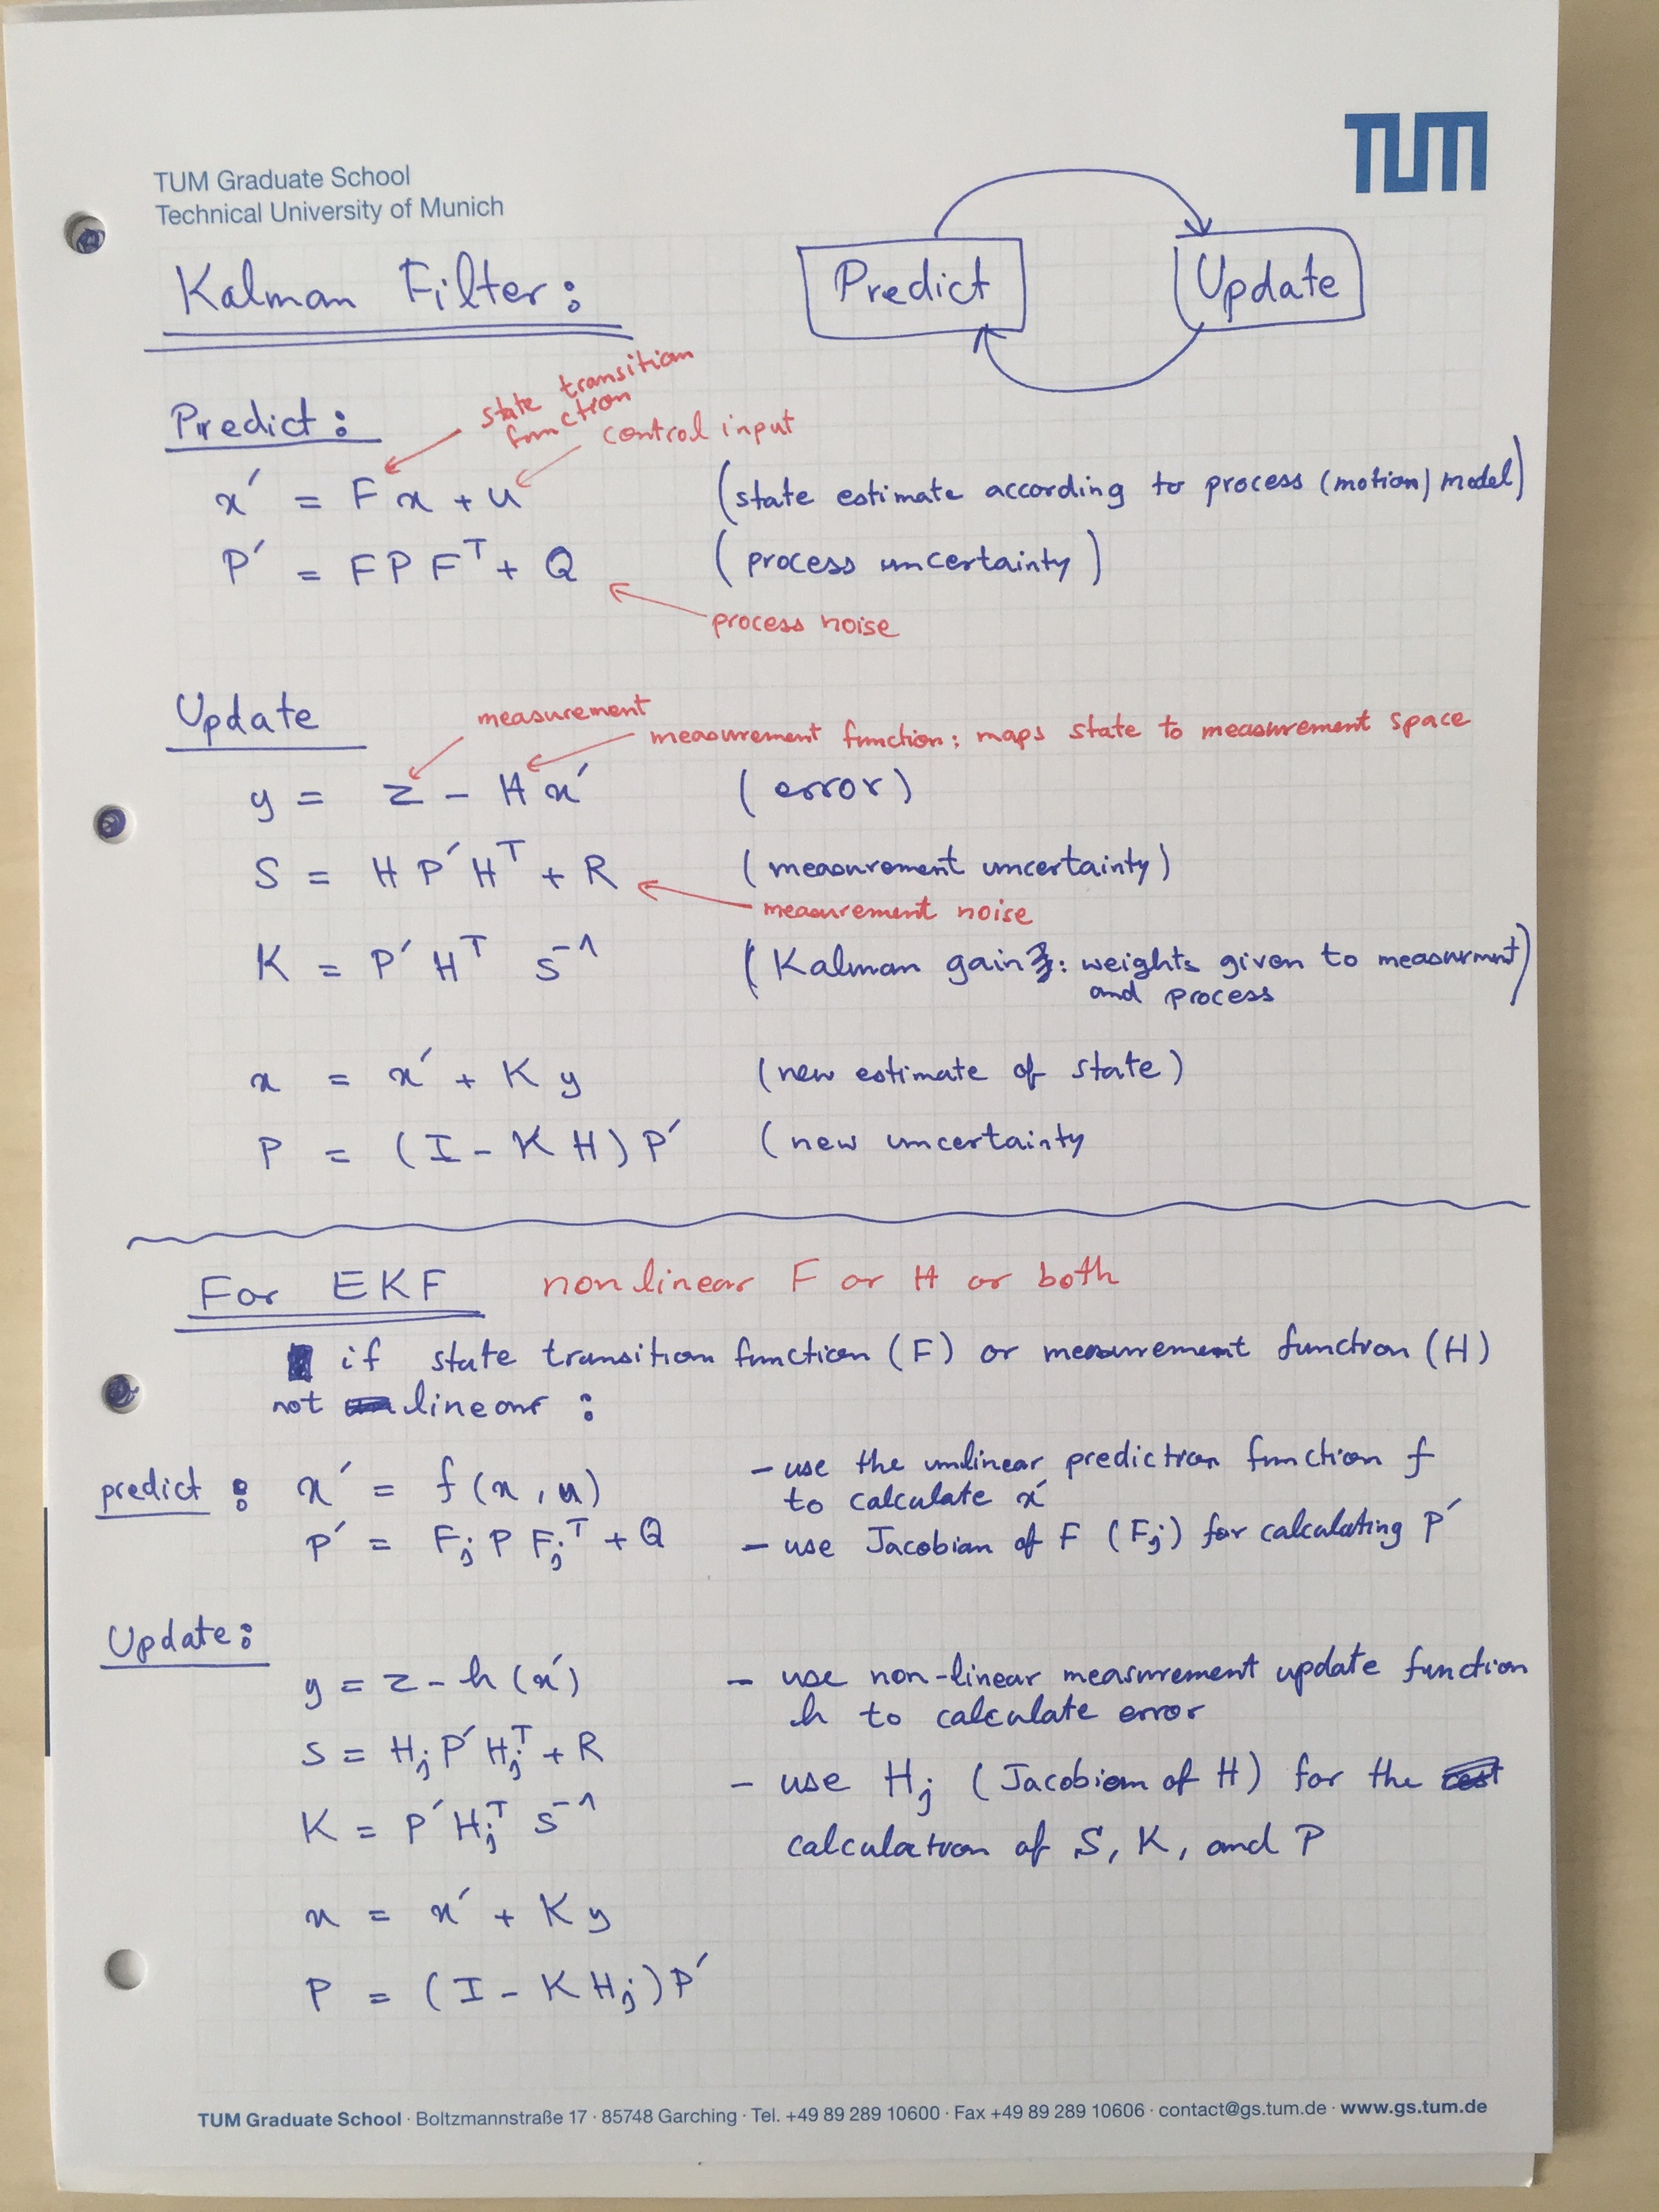 TUM
TUM Graduate School
Technical University of Munich
Kalman Filter:
Predict
Update
Predict:
state transition
function
control input
x′ = F x + u (state estimate according to process (motion) model)
P′ = F P Fᵀ + Q (process uncertainty)
process noise
Update
measurement
measurement function: maps state to measurement space
y = z - H x′ (error)
S = H P′ Hᵀ + R (measurement uncertainty)
measurement noise
K = P′ Hᵀ S⁻¹ (Kalman gain: weights given to measurment
and process)
x = x′ + K y (new estimate of state)
P = (I - K H) P′ (new uncertainty
For EKF nonlinear F or H or both
if state transition function (F) or measurement function (H)
not linear :
predict : x′ = f (x, u) - use the unlinear prediction function f
to calculate x′
P′ = Fj P Fjᵀ + Q - use Jacobian of F (Fj) for calculating P′
Update:
y = z - h (x′) - use non-linear measurement update function
h to calculate error
S = Hj P′ Hjᵀ + R
- use Hj (Jacobian of H) for the
K = P′ Hjᵀ S⁻¹
calculation of S, K, and P
x = x′ + K y
P = (I - K Hj) P′
TUM Graduate School · Boltzmannstraße 17 · 85748 Garching · Tel. +49 89 289 10600 · Fax +49 89 289 10606 · contact@gs.tum.de · www.gs.tum.de